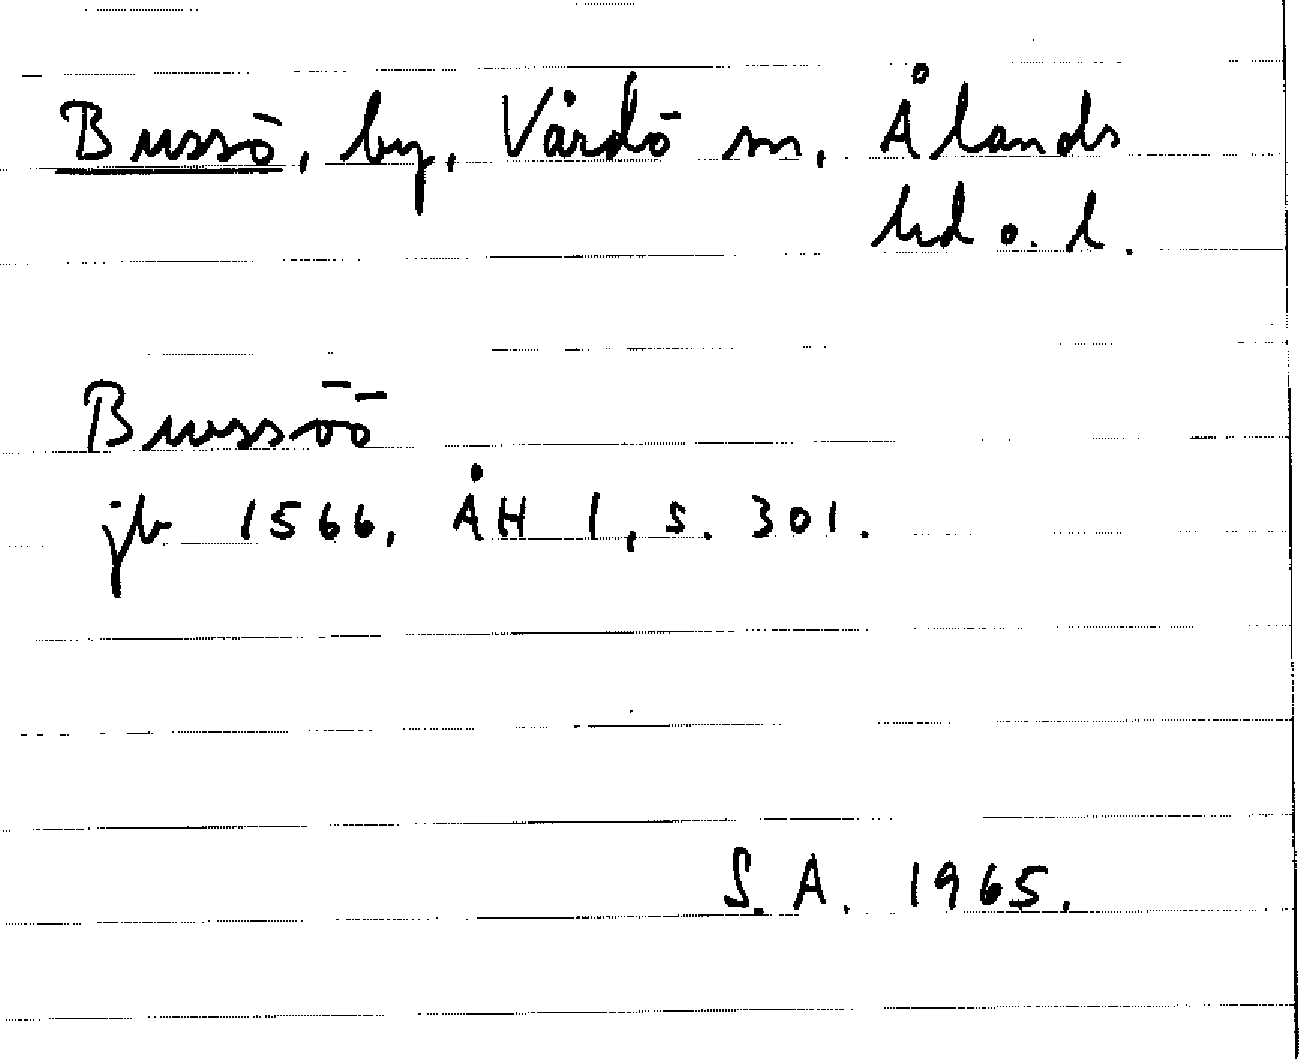 Bussö, by, Vårdö sn, Ålands
hd o. l.
Bussöö
jb 1566, ÅH 1, s. 301.
S.A. 1965.